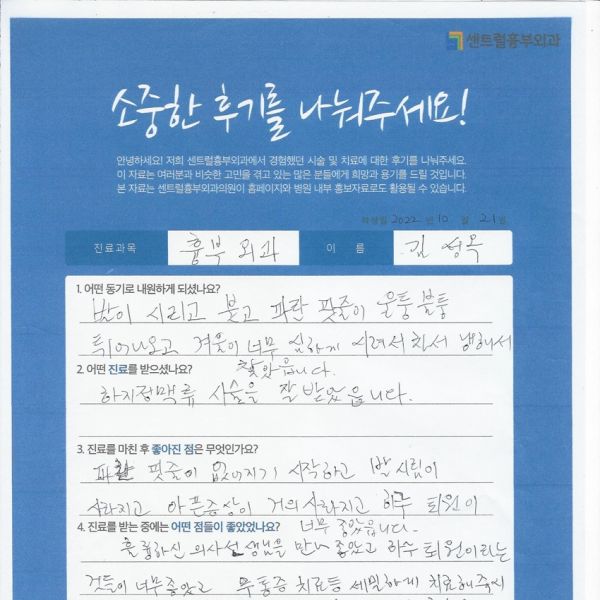 센트럴흉부외과
소중한 후기를 나눠주세요!
안녕하세요! 저희 센트럴흉부외과에서 경험했던 시술 및 치료에 대한 후기를 나눠주세요.
이 자료는 여러분과 비슷한 고민을 겪고 있는 많은 분들에게 희망과 용기를 드릴 것입니다.
본 자료는 센트럴흉부외과의원이 홈페이지와 병원 내부 홍보자료로도 활용될 수 있습니다.
작성일 2022 년 10 월 21 일
진료과목 흉부외과 이 름 김성목
1. 어떤 동기로 내원하게 되셨나요?
발이 시리고 붓고 파란 핏줄이 울퉁불퉁
튀어나오고 겨울이 너무 심하게 시려서
찾았읍니다.
2. 어떤 진료를 받으셨나요?
하지정맥류 시술을 잘 받았읍니다.
3. 진료를 마친 후 좋아진 점은 무엇인가요?
핏줄이 없어지기 시작하고 발시림이
사라지고 아픈증상이 거의 사라지고 하루 퇴원이
너무 좋았읍니다.
4. 진료를 받는 중에는 어떤 점들이 좋았었나요?
훌륭하신 의사선생님을 만나 좋았고 하루 퇴원이라는
것들이 너무좋았고 무통증 치료등 세밀하게 치료해주시